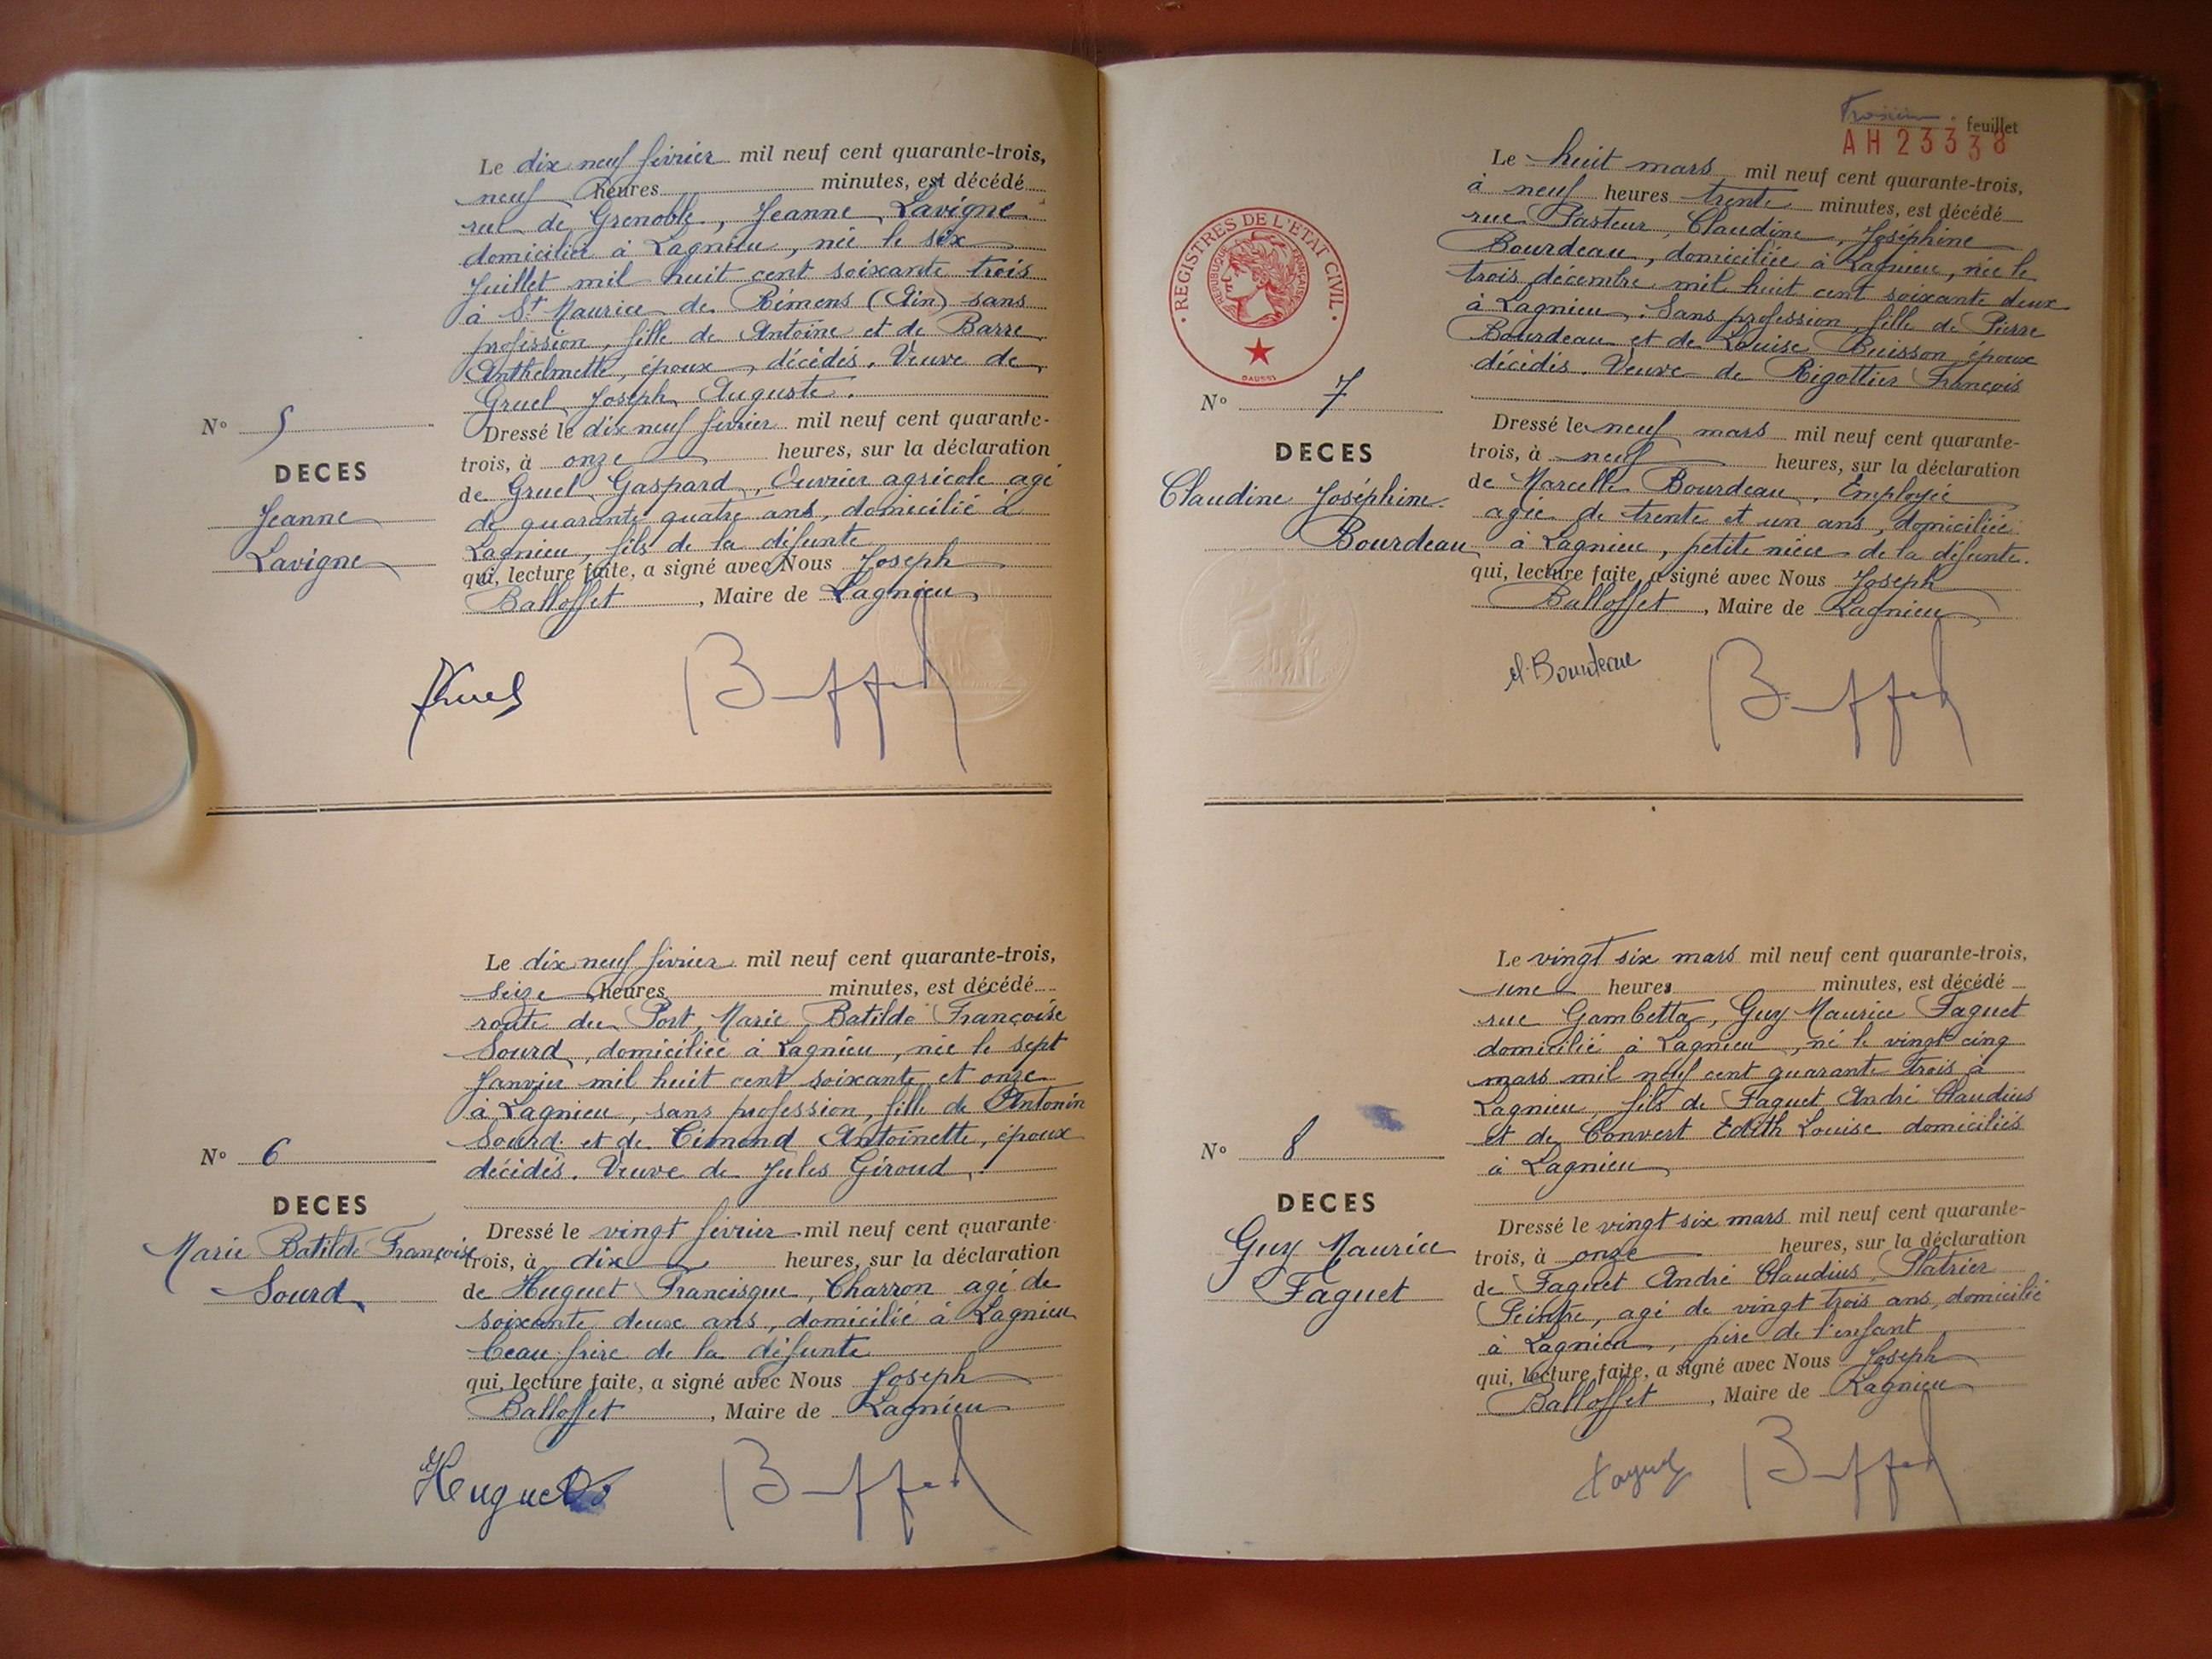 Le dix neuf février mil neuf cent quarante-trois,
neuf heures minutes, est décédé
rue de Grenoble, Jeanne Lavigne
domiciliée à Lagnieu, née le six
Juillet mil huit cent soixante trois
à St Maurice de Rémens (Ain) sans
profession, fille de Antoine et de Barre
Anthelmette, époux, décédés. Veuve de
Gruel Joseph Auguste.
N° 5
DECES
Jeanne
Lavigne
Dressé le dix neuf février mil neuf cent quarante-
trois, à onze heures, sur la déclaration
de Gruel Gaspard, Ouvrier agricole agé
de quarante quatre ans, domicilié à
Lagnieu, fils de la défunte
qui, lecture faite, a signé avec Nous Joseph
Balloffet, Maire de Lagnieu
Le dix neuf février mil neuf cent quarante-trois,
seize heures minutes, est décédé
route du Port, Marie Batilde Françoise
Sourd, domiciliée à Lagnieu, née le sept
Janvier mil huit cent soixante et onze
à Lagnieu, sans profession, fille de Antonin
Sourd et de Cimond Antoinette, époux
décédés. Veuve de Jules Giroud.
N° 6
DECES
Marie Batilde Françoise
Sourd
Dressé le vingt février mil neuf cent quarante-
trois, à dix heures, sur la déclaration
de Huguet Francisque, Charron agé de
soixante deux ans, domicilié à Lagnieu
beau-frère de la défunte
qui, lecture faite, a signé avec Nous Joseph
Balloffet, Maire de Lagnieu
Huguet
Troisième feuillet
AH 23338
REGISTRES DE L'ETAT CIVIL
REPUBLIQUE FRANCAISE
Le huit mars mil neuf cent quarante-trois,
à neuf heures trente minutes, est décédé
rue Pasteur, Claudine, Joséphine
Bourdeau, domiciliée à Lagnieu, née le
trois décembre mil huit cent soixante deux
à Lagnieu. Sans profession, fille de Pierre
Bourdeau et de Louise Buisson, époux
décédés. Veuve de Rigottier François
N° 7
DECES
Claudine Joséphine
Bourdeau
Dressé le neuf mars mil neuf cent quarante-
trois, à neuf heures, sur la déclaration
de Marcelle Bourdeau, Employée
agée de trente et un ans, domiciliée
à Lagnieu, petite nièce de la défunte.
qui, lecture faite, a signé avec Nous Joseph
Balloffet, Maire de Lagnieu
M. Bourdeau
Le vingt six mars mil neuf cent quarante-trois,
une heures minutes, est décédé
rue Gambetta, Guy Maurice Faguet
domicilié à Lagnieu, né le vingt cinq
mars mil neuf cent quarante trois à
Lagnieu, fils de Faguet André Claudius
et de Convert Edith Louise domiciliés
à Lagnieu
N° 8
DECES
Guy Maurice
Faguet
Dressé le vingt six mars mil neuf cent quarante-
trois, à onze heures, sur la déclaration
de Faguet André Claudius, Platrier
Peintre, agé de vingt trois ans, domicilié
à Lagnieu, père de l'enfant
qui, lecture faite, a signé avec Nous Joseph
Balloffet, Maire de Lagnieu
Faguet